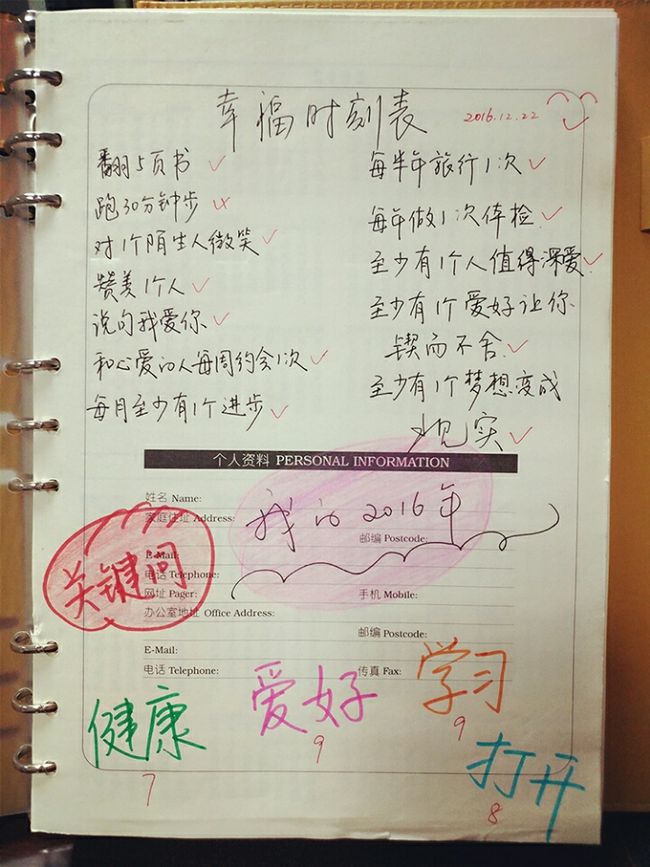 幸福时刻表 2016.12.22
翻5页书
跑30分钟步
对1个陌生人微笑
赞美1个人
说句我爱你
和心爱的人每周约会1次
每月至少有1个进步
每半年旅行1次
每年做1次体检
至少有1个人值得深爱
至少有1个爱好让你
锲而不舍
至少有1个梦想变成
现实
个人资料 PERSONAL INFORMATION
姓名 Name:
家庭住址 Address:
我的2016年
邮编 Postcode:
E-Mail:
电话 Telephone:
网址 Pager:
手机 Mobile:
关键词
办公室地址 Office Address:
邮编 Postcode:
E-Mail:
电话 Telephone:
传真 Fax:
健康
7
爱好
9
学习
9
打开
8